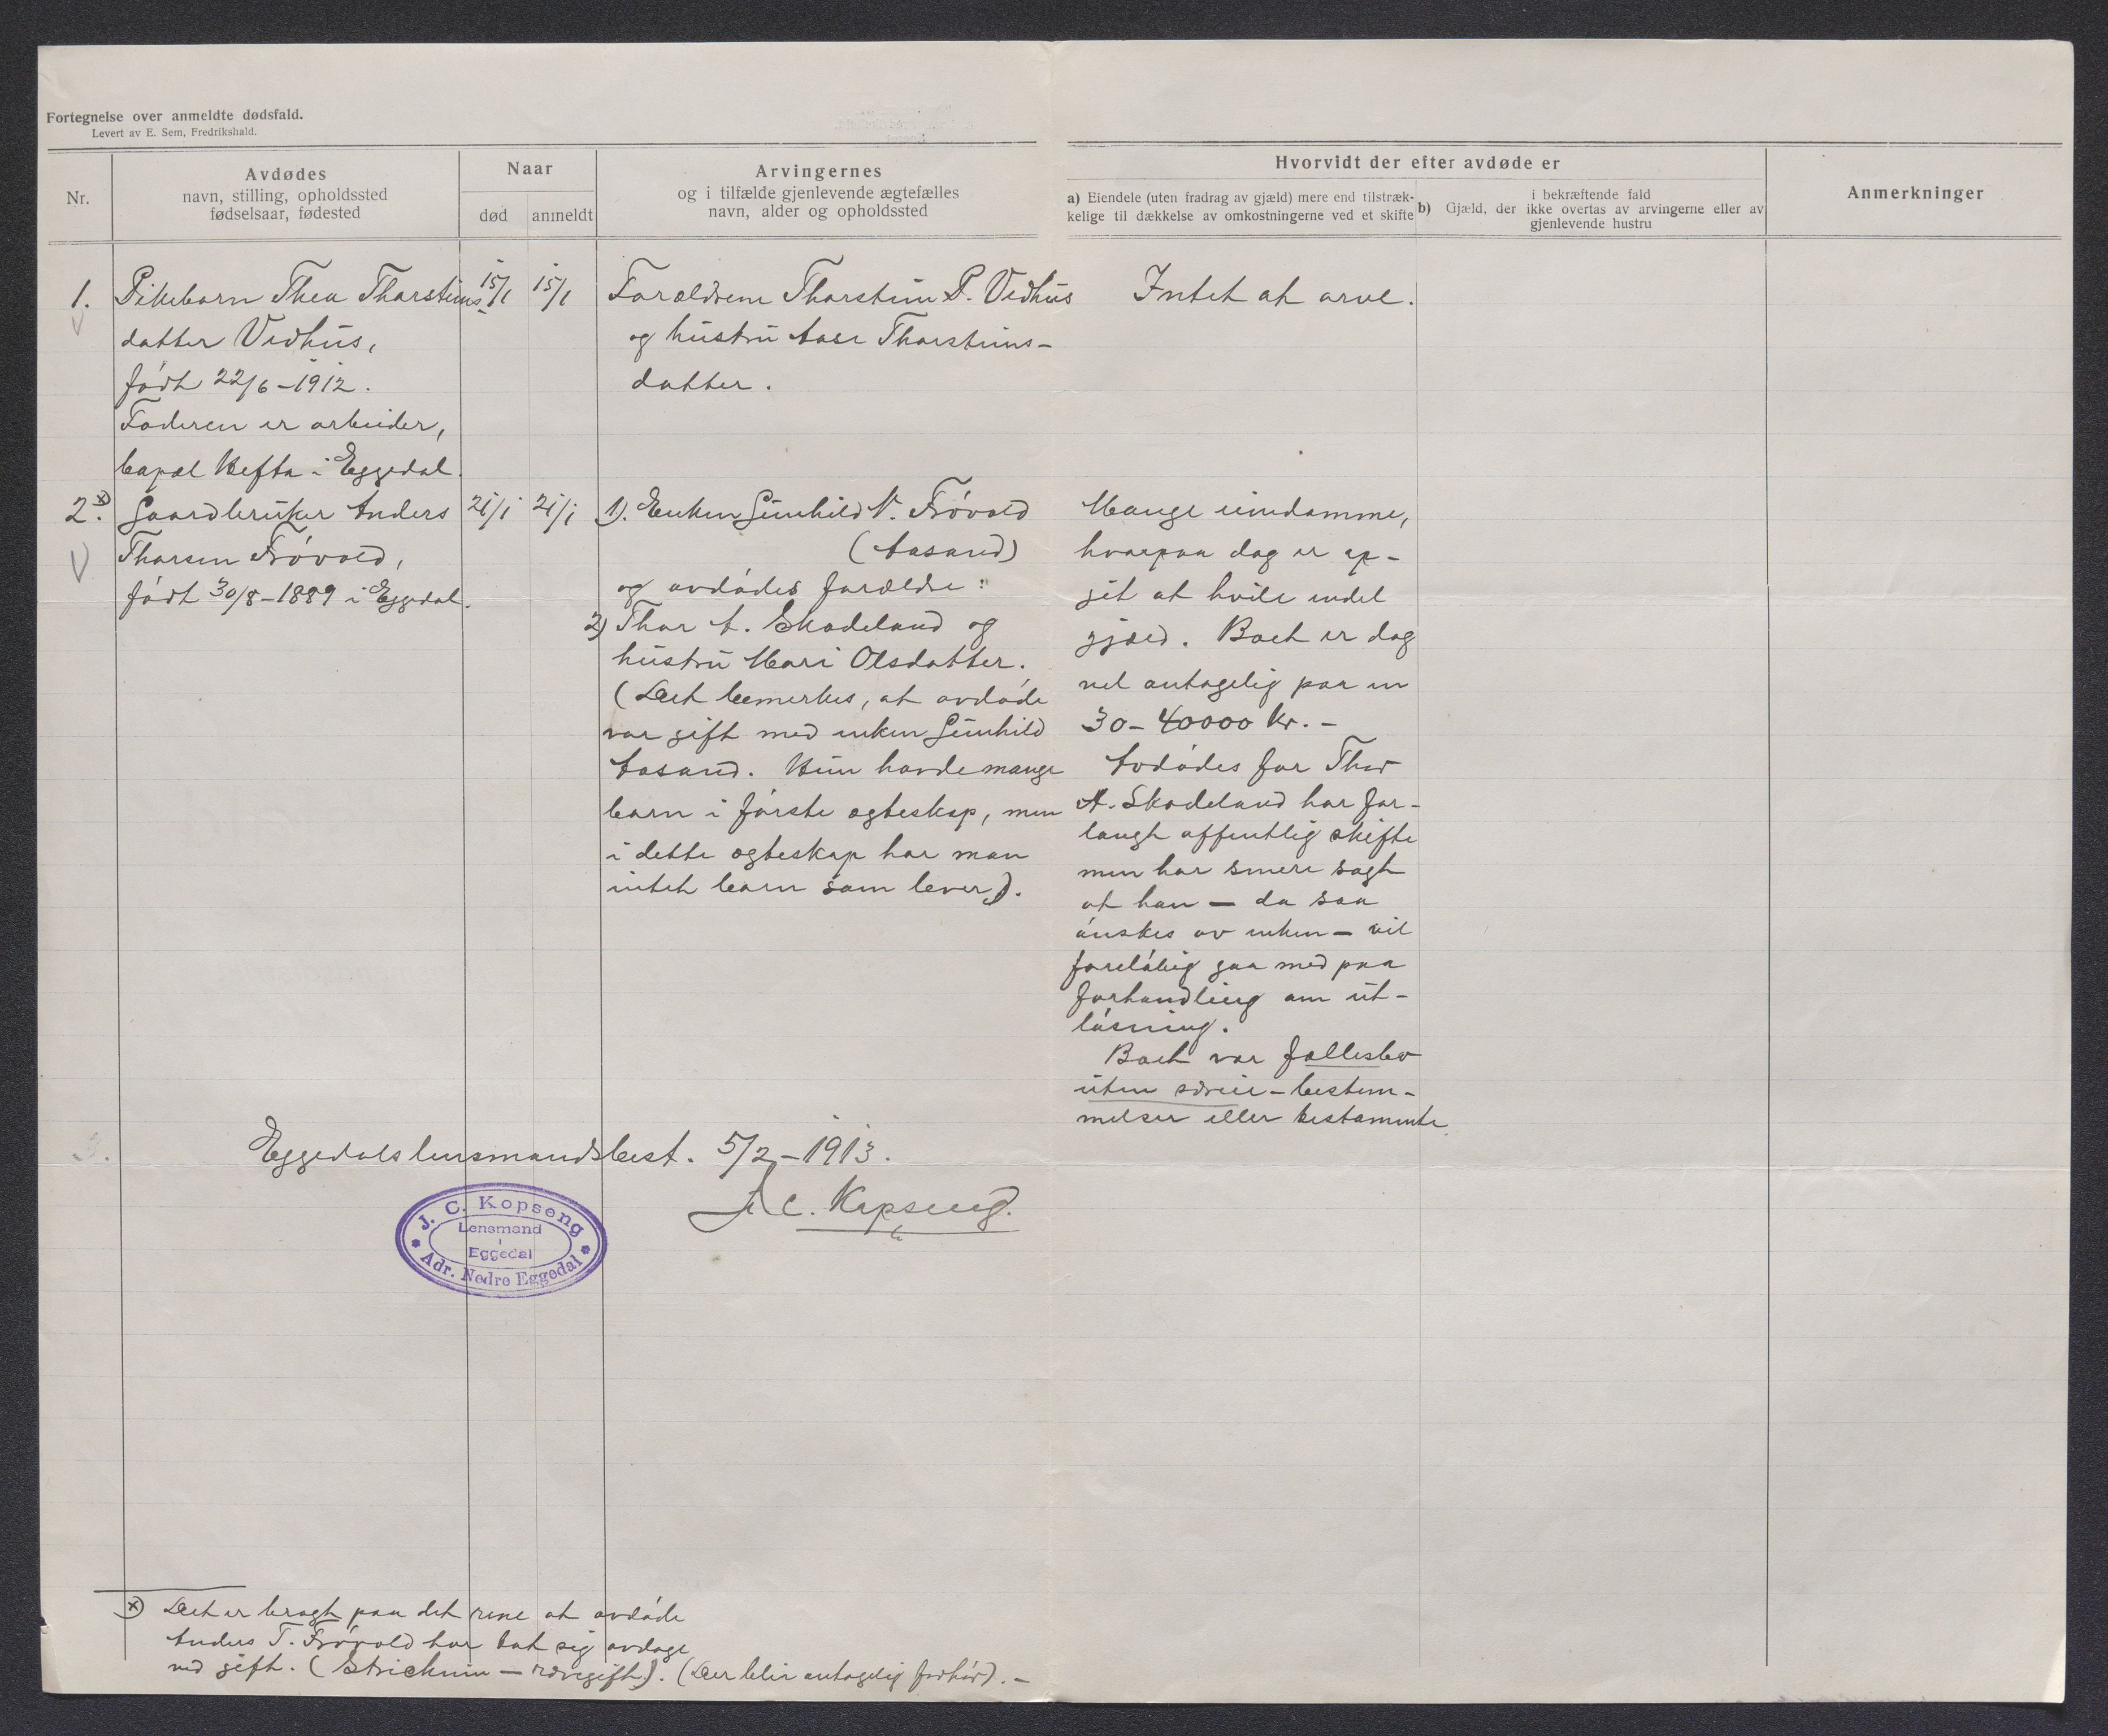 Fortegnelse over anmeldte dødsfald.
Levert av E. Sem, Fredrikshald.
Nr.
Avdødes
navn, stilling, opholdssted
fødselsaar, fødested
Naar
død
anmeldt
Arvingernes
og i tilfælde gjenlevende ægtefælles
navn, alder og opholdssted
Hvorvidt der efter avdøde er
a) Eiendele (uten fradrag av gjæld) mere end tilstræk-
kelige til dækkelse av omkostningerne ved et skifte
b) Gjæld, der
i bekræftende fald
ikke overtas av arvingerne eller av
gjenlevende hustru
Anmerkninger
1.
Pikebarn Thea Thorsteins
datter Vedhus,
født 22/6-1912.
Faderen er arbeider,
Eggedal.
15/1
15/1
Forældrene Thorstein P. Vedhus
og hustru Aase Thorsteins-
datter.
Intet at arve.
2. x)
Gaardbruker Anders
Thorsen Frøvold,
født 30/8-1889 i Eggedal.
21/1
21/1
1). Enken Gunhild N. Frøvold
(Aasand)
og avdødes forældre:
2) Thor A. Skodeland og
hustru Mari Olsdatter.
(Det bemerkes, at avdøde
var gift med enken Gunhild
Aasand. Hun havde mange
barn i første egteskap, men
i dette egteskap har man
intet barn som lever).
Mange eiendomme,
hvorpaa dog er op-
git at hvile endel
gjæld. Boet er dog
vel antagelig paa en
30-40000 kr.-
Avdødes far Thor
A. Skodeland har for-
langt offentlig skifte
men har senere sagt
at han – da saa
ønskes av enken – vil
foreløbig gaa med paa
forhandling om ut-
løsning.
Boet var fællesbo
uten særeie-bestem-
melser eller testamente.
3.
Eggedals lensmandsbest. 5/2-1913.
J. C. Kopseng.
J. C. Kopseng
Lensmand
i
Eggedal
Adr. Nedre Eggedal
x) Det er bragt paa det rene at avdøde
Anders T. Frøvold har tat sig avdage
ved gift. (Stricknin – rævegift). (Der blir antagelig forhør).-